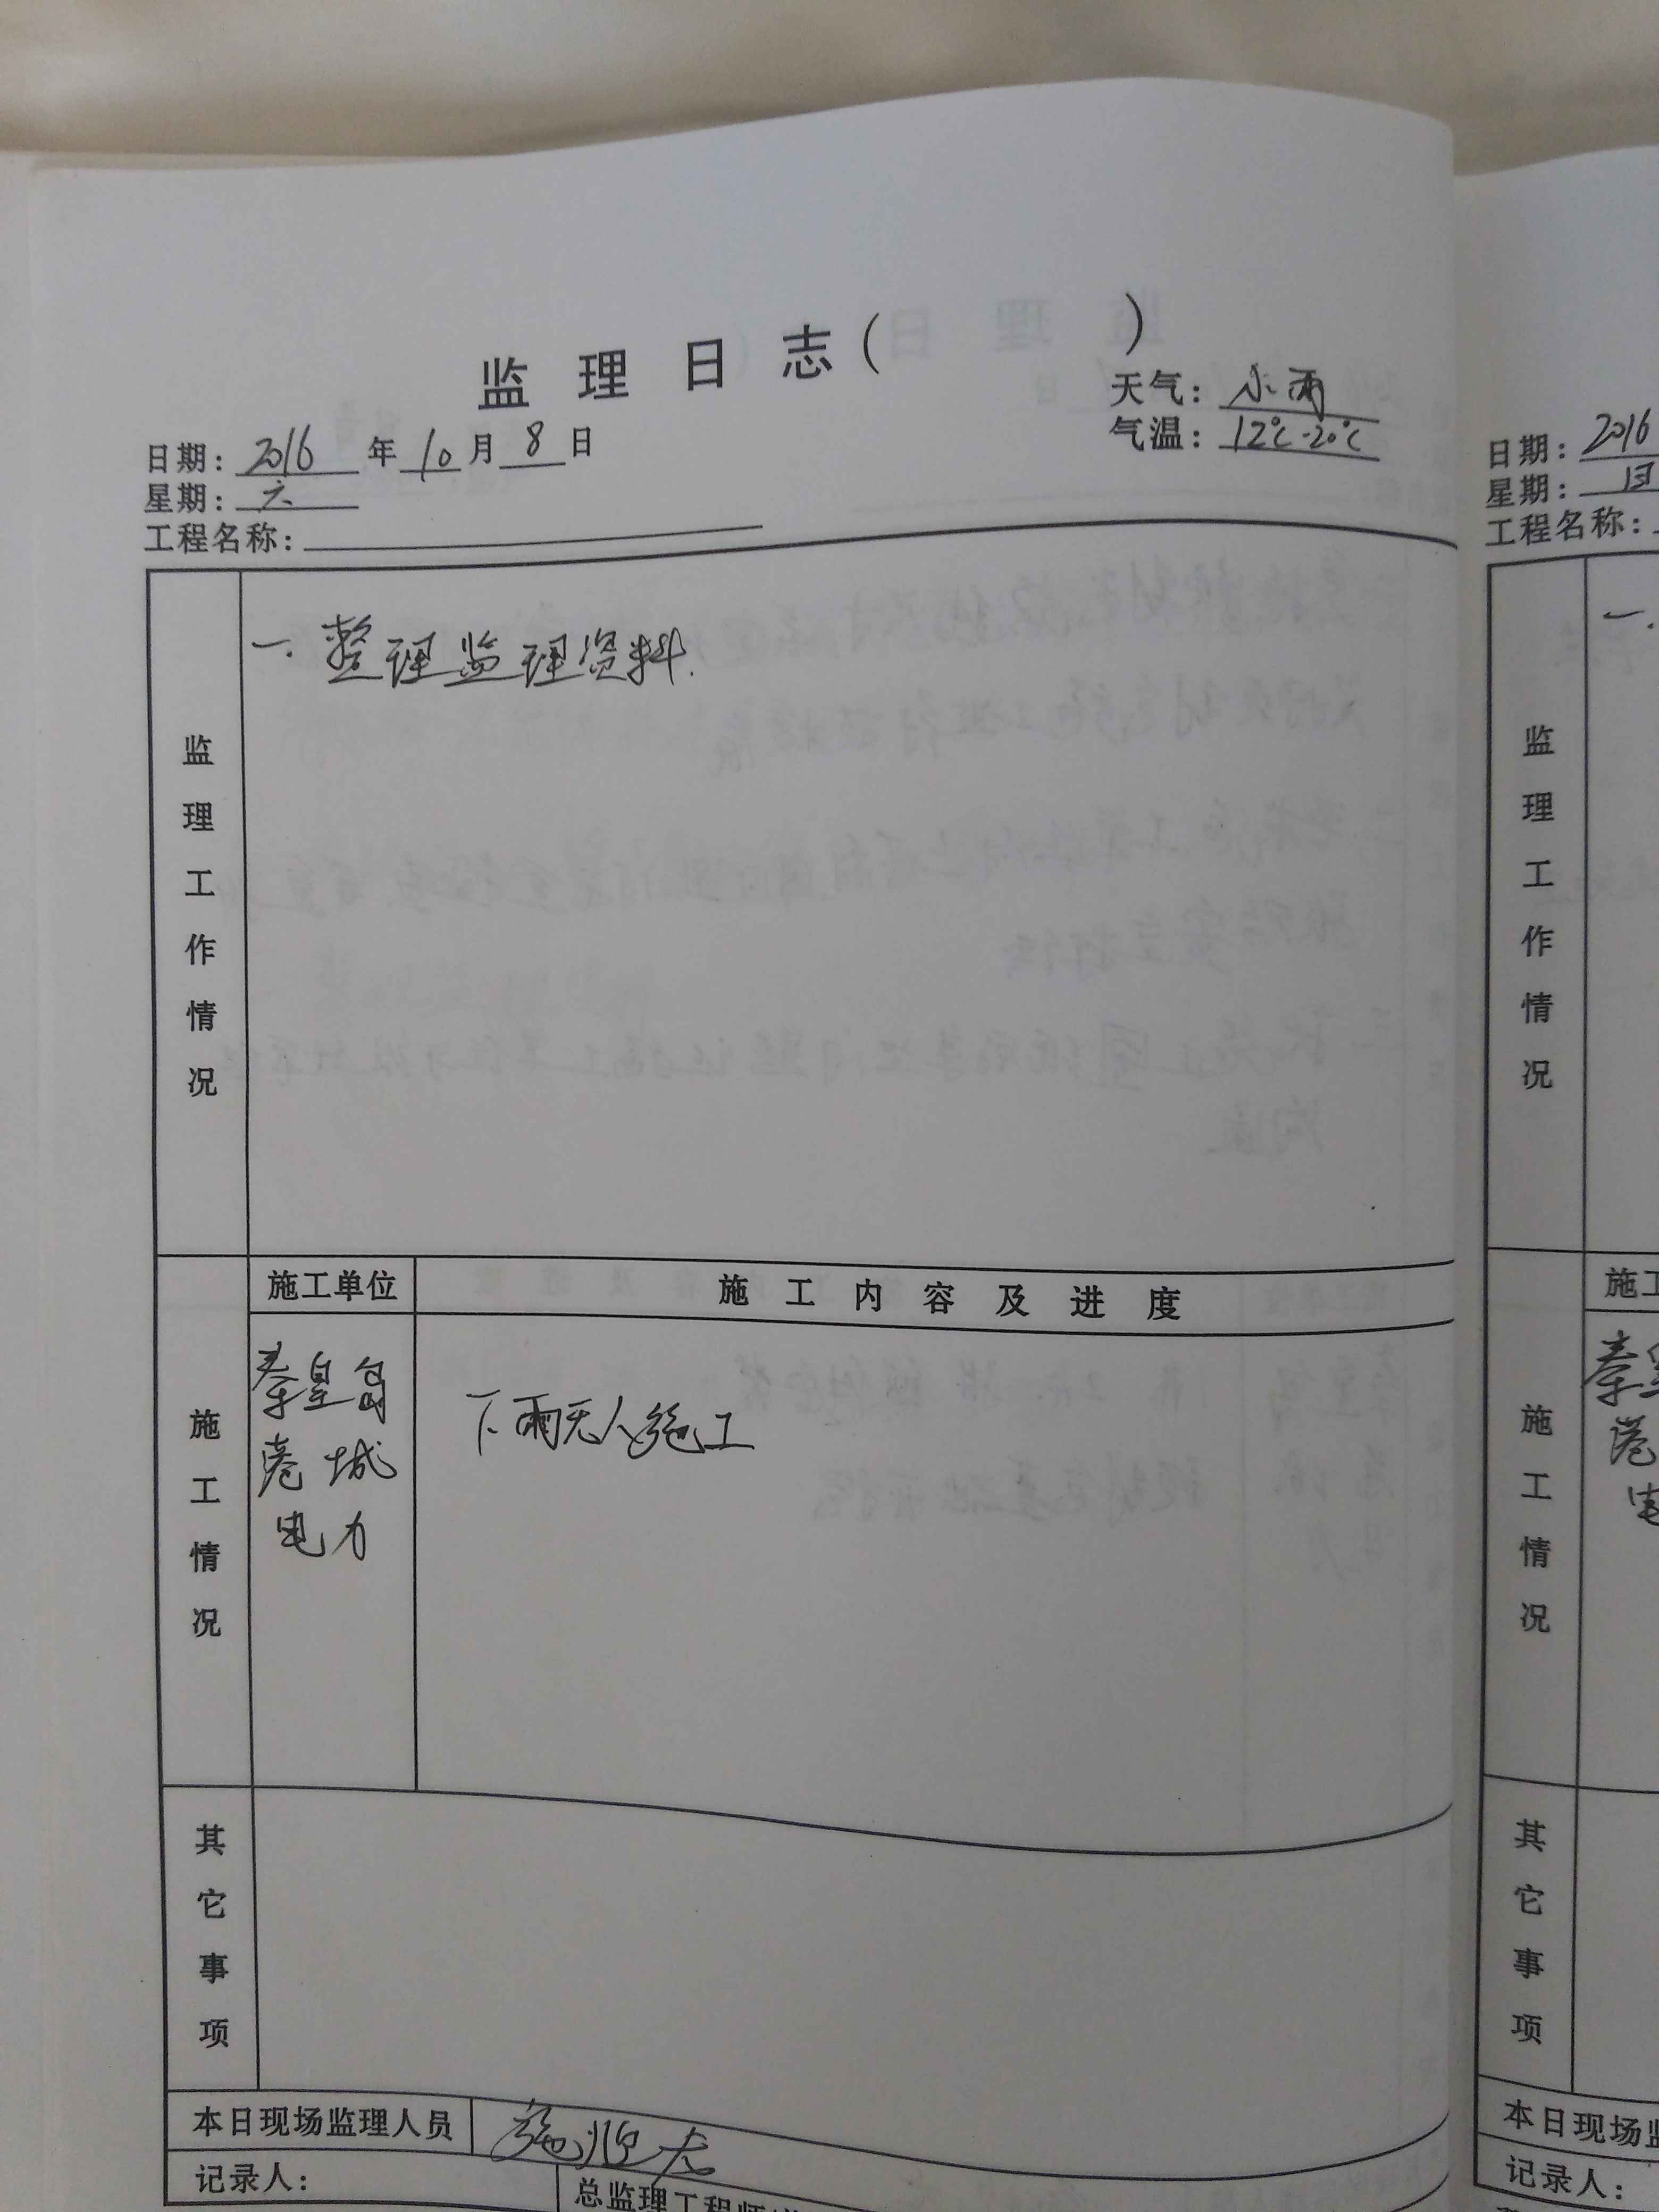 监理日志( )
天气: 小雨
气温: 12℃-20℃
日期: 2016 年 10 月 8 日
星期: 六
工程名称:
监理工作情况
一. 整理监理资料.
施工情况
施工单位
施工内容及进度
秦皇岛
港城
电力
下雨无人施工
其它事项
本日现场监理人员
记录人:
总监理工程师
日期: 2016
星期: 日
工程名称:
监理工作情况
一.
施工情况
施工
秦皇
港
电
其它事项
本日现场监
记录人: